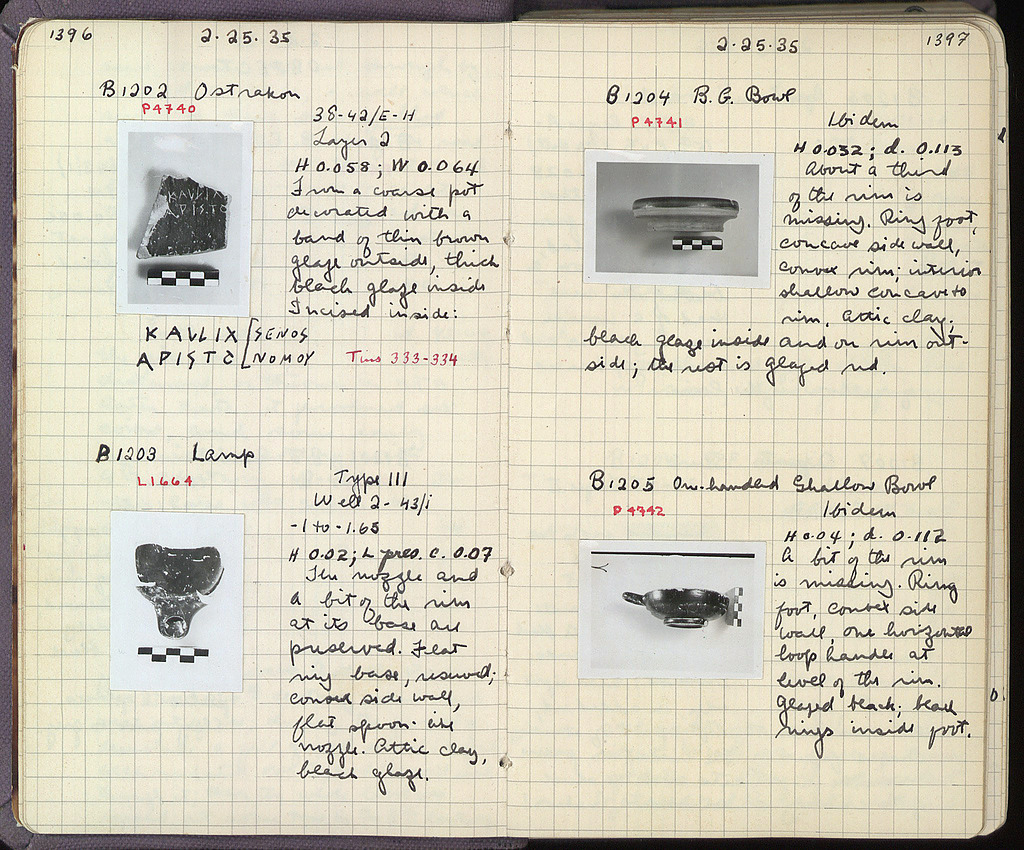 1396
2·25·35
B1202 Ostrakon
P4740
38-42/E-H
Layer 2
H 0.058; W 0.064
From a coarse pot
decorated with a
band of thin brown
glaze outside, thick
black glaze inside
Incised inside:
KALLIX[SENOS
ARISTO[NOMOY
Tins 333-334
KALLIX
ARISTO
B1203 Lamp
L1664
Type III
Well 2-43/i
-1 to -1.65
H 0.02; L pres. c. 0.07
The nozzle and
a bit of the rim
at its base are
preserved. Flat
ring base, reserved;
convex side wall,
flat spoon-like
nozzle. Attic clay,
black glaze.
2·25·35
1397
B1204 B.G. Bowl
P4741
Ibidem
H 0.032; d. 0.113
About a third
of the rim is
missing. Ring foot,
concave side wall,
convex rim; interior
shallow concave to
rim. Attic clay;
black glaze inside and on rim out-
side; the rest is glazed red.
B1205 One-handled Shallow Bowl
P4742
Ibidem
H 0.04; d. 0.112
A bit of the rim
is missing. Ring
foot, convex side
wall, one horizontal
loop handle at
level of the rim.
Glazed black; black
rings inside foot.